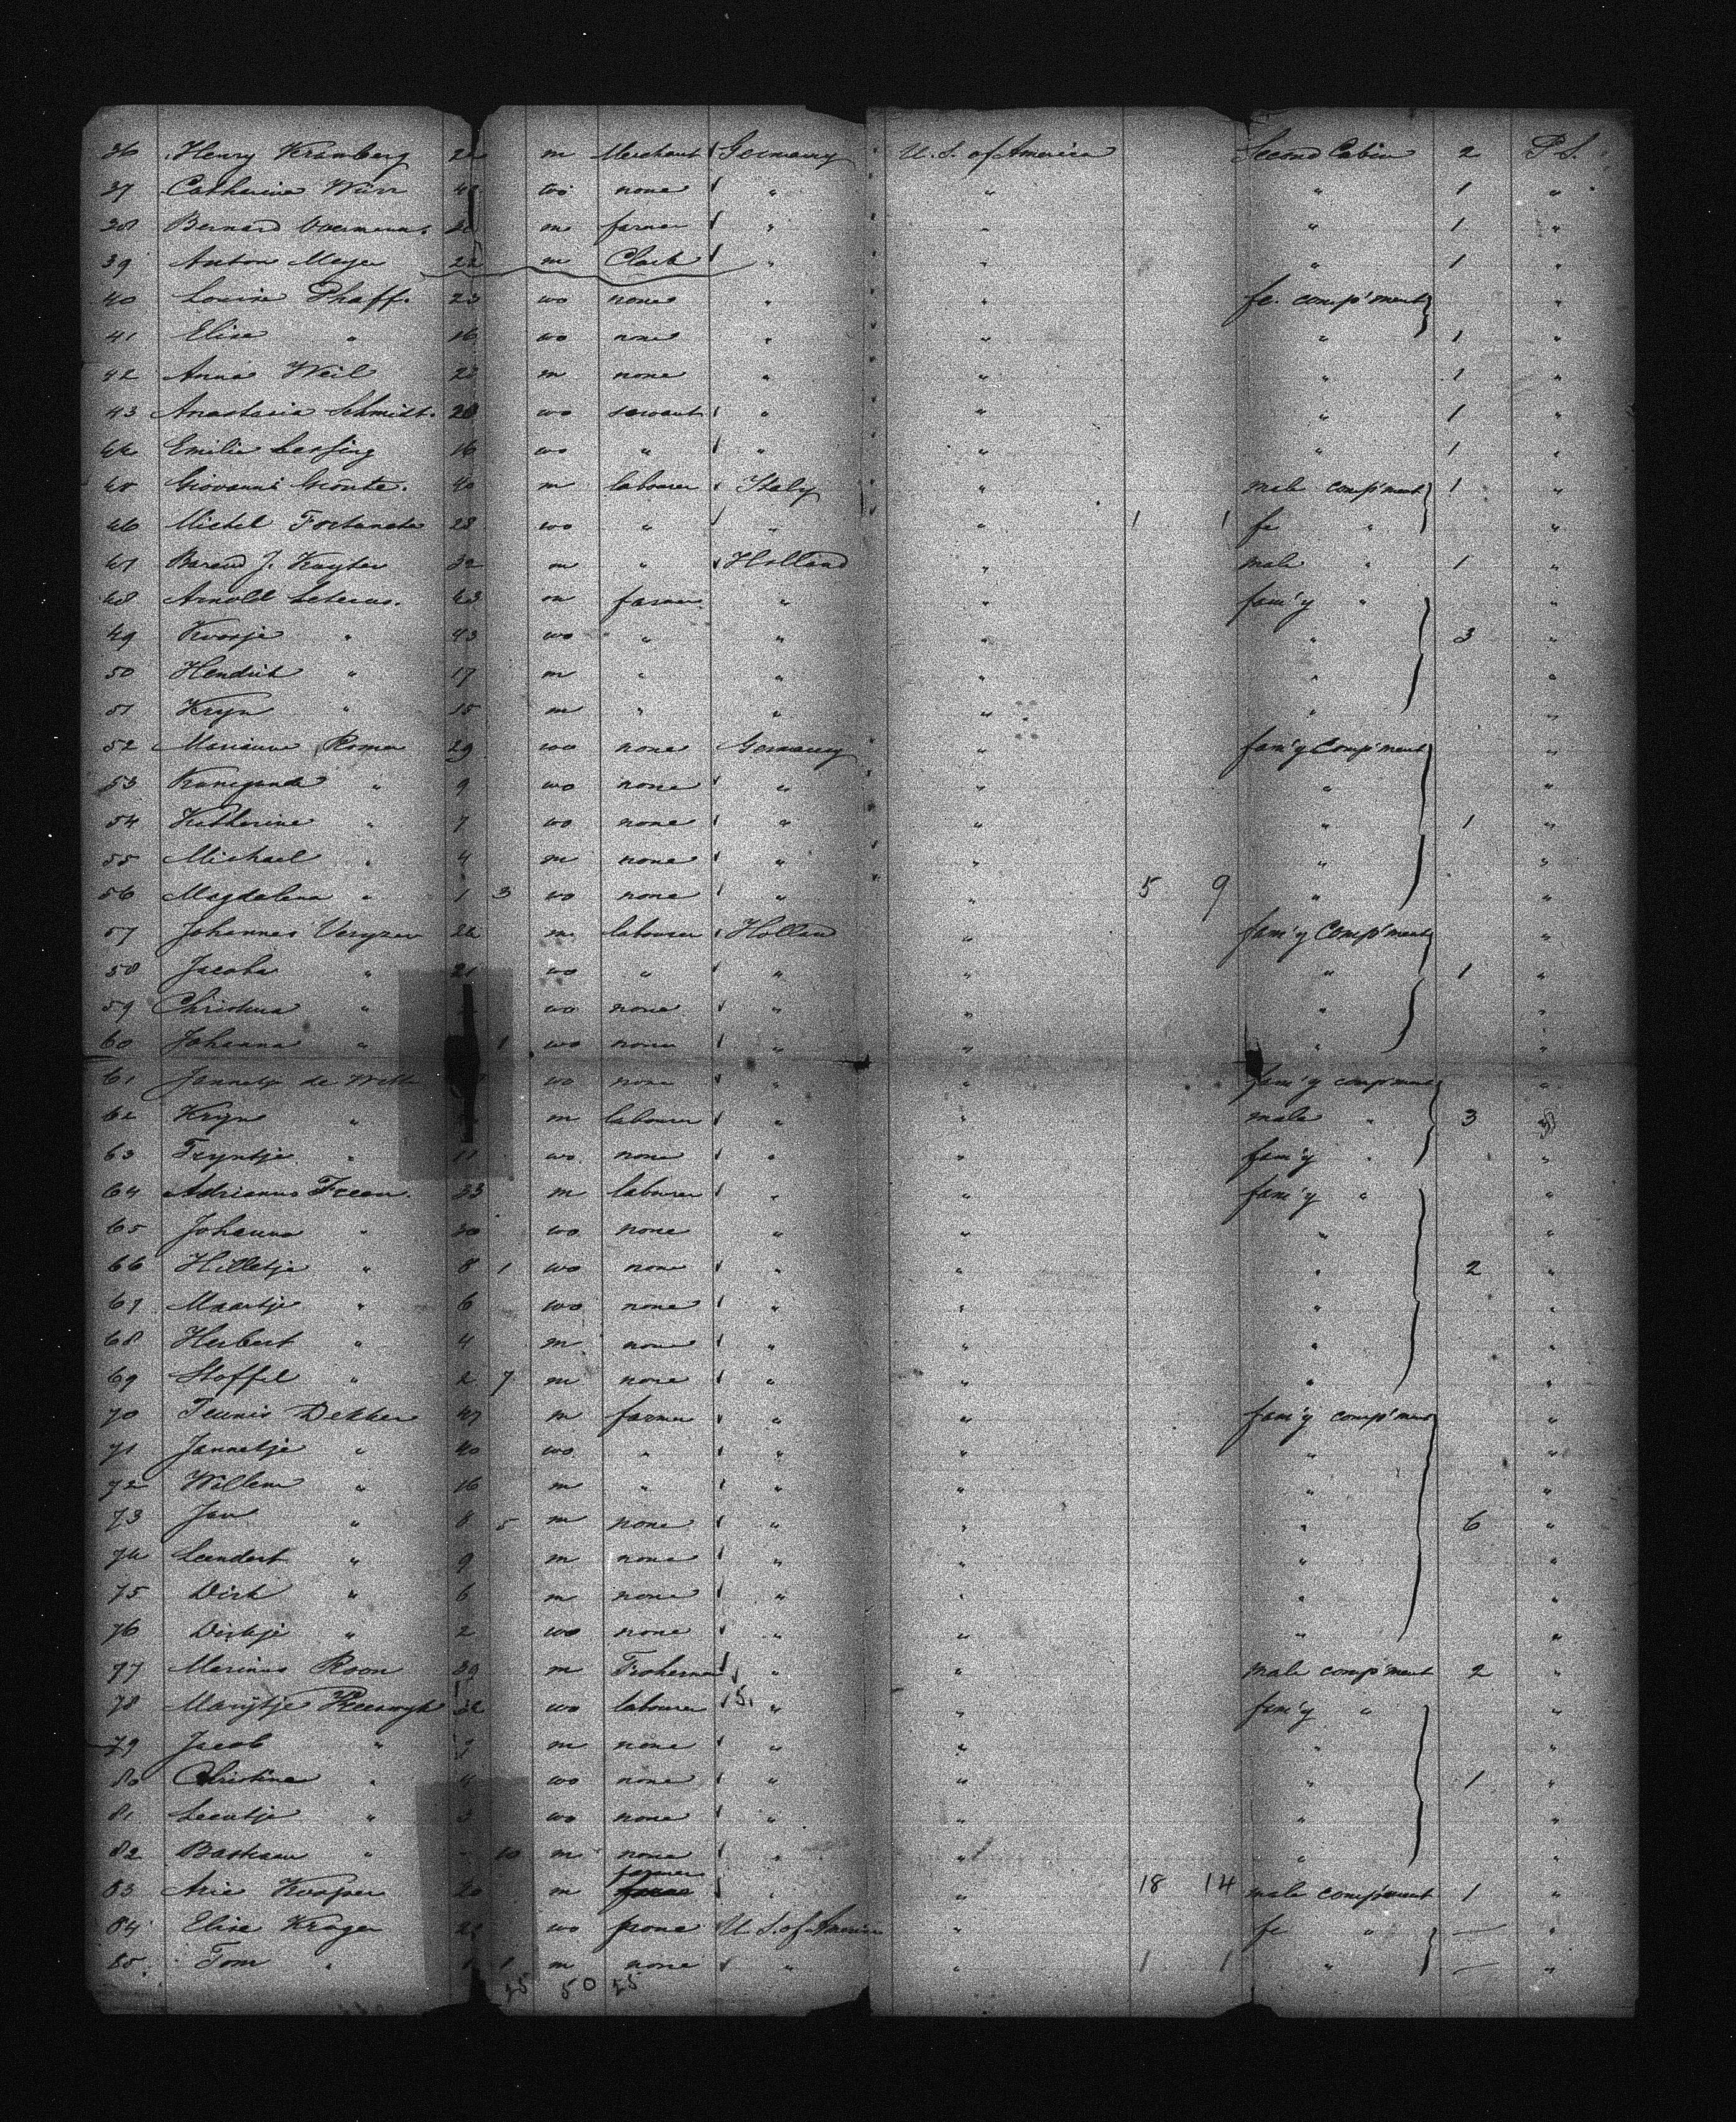 36 Henry Kramberg 22 m Merchant Germany U. S. of America Second Cabin 2 P S.
37 Catharina Wirr wo none " " " 1 "
38 Bernard m farmer " " " 1 "
39 Anton Meyer 22 m Clerk " " " 1 "
40 Louise Phaff. 23 wo none " " fe. comp'ment "
41 Elise " 16 wo none " " " 1 "
42 Anna Weil 23 m none " " " 1 "
43 Anastasia Schmidt. 20 wo servant " " " 1 "
44 Emilie Lessing 16 wo " " " " 1 "
45 Giovanni 40 m labourer Italy " male comp'ment 1 "
46 Michel Fortunata 28 wo " " " 1 1 fe " "
47 Barend J. Kuyter 32 m " Holland " male " 1 "
48 Arnold 43 m farmer " " fam'y " "
49 Koosje " 43 wo " " " " 3 "
50 Hendrik " 17 m " " " " "
51 Kryn " 15 m " " " " "
52 Marianne Roma 29 wo none Germany " fam'y Comp'ment "
53 " 9 wo none " " " "
54 Katherine " 7 wo none " " " 1 "
55 Michael " 4 m none " " " "
56 Magdalena " 1 3 wo none " " 5 9 " "
57 Johannes Veryzer 22 m labourer Holland " fam'y Comp'ment "
58 Jacoba " 21 wo " " " " 1 "
59 Christina " wo none " " " "
60 Johanna " 1 wo none " " " "
61 Jannetje de Witte wo none " " fam'y comp'ment "
62 Kryn " m labourer " " male " 3 "
63 Tryntje " 11 wo none " " fam'y " "
64 Adrianus 33 m labourer " " fam'y " "
65 Johanna " 30 wo none " " " "
66 Hilletje " 8 1 wo none " " " 2 "
67 Maartje " 6 wo none " " " "
68 Herbert " 4 m none " " " "
69 Stoffel " 2 7 m none " " " "
70 Teunis Dekker 47 m farmer " " fam'y comp'ment "
71 Jannetje " 40 wo " " " " "
72 Willem " 16 m " " " " "
73 Jan " 8 5 m none " " " 6 "
74 Leendert " 9 m none " " " "
75 Dirk " 6 m none " " " "
76 Dirkje " 2 wo none " " " "
77 Marinus Roon 39 m " " male comp'ment 2 "
78 Marijtje 32 wo labourer 15. " " fam'y " "
79 Jacob " 7 m none " " " "
80 Christina " 4 wo none " " " 1 "
81 Leentje " 3 wo none " " " "
82 Bastiaan " - 10 m none " " " "
83 Arie Kooper 20 m farmer " " 18 14 male comp'ment 1 "
84 Elise Kruger wo none U. S. of America " fe " — "
85. Tom " 1 1 m none " " 1 1 " — "
25 50 25